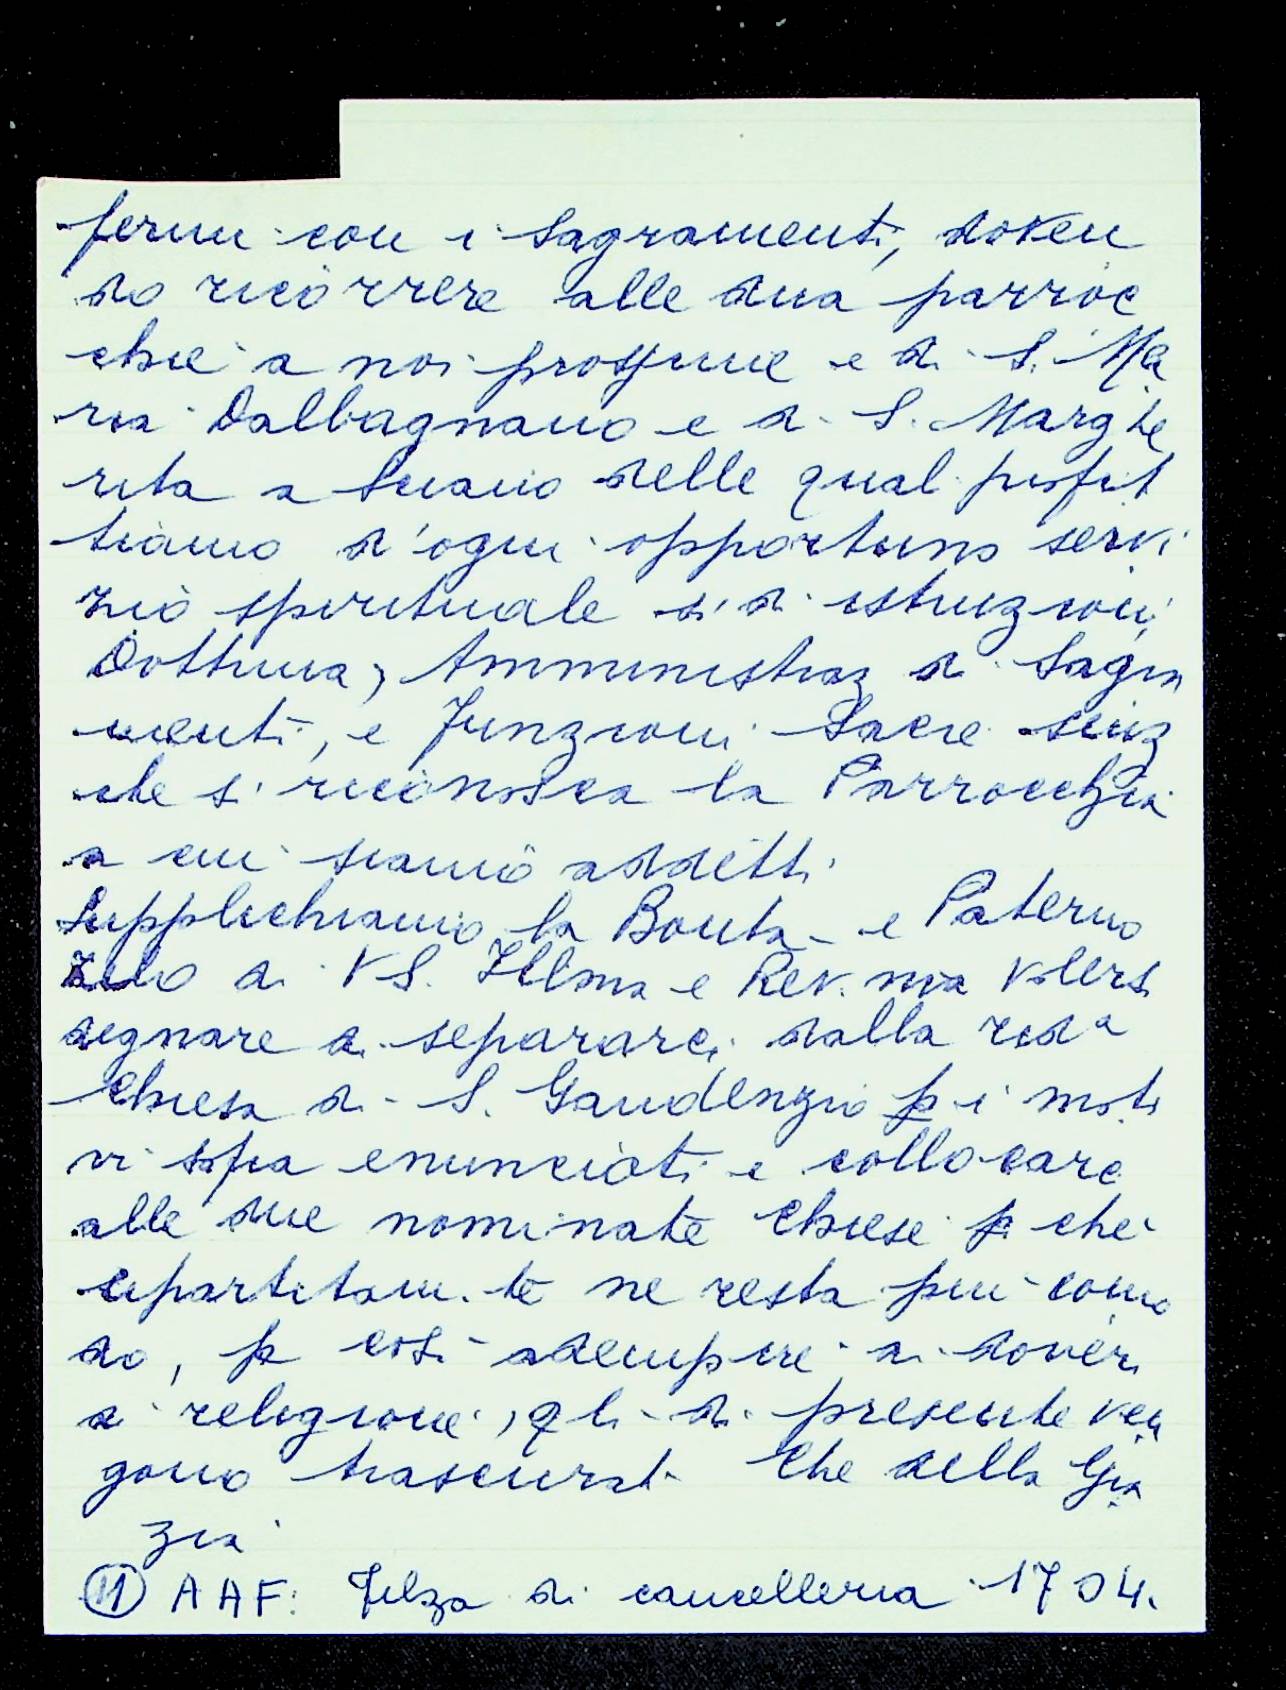 fermi con i Sagramenti, doven
do ricorrere alle dua parroc
chie a noi prossime e di S. Ma
ria Dalbagnano e di S. Marghe
rita a delle quali profit
tiamo d'ogni opportuno servi
zio spirituale si di istruzioni,
Dottrina, Amministraz di Sagra
menti, e Funzioni Sacre senz
che si riconosca la Parrocchia
a cui siamo addetti.
Supplichiamo la Bonta e Paterno
zelo di VS. Illma e Rev.ma volersi
degnare di separarci dalla red.a
Chiesa di S. Gaudenzio p i moti
vi sopra enunciati e collocare
alle due nominate Chiese p che
ripartitam.te ne resta piu como
do, p cosi adempire ai doveri
di religione, qli di presente ven
gono trascurati Che della Gra
zia
(11) AAF: Filza di cancelleria 1704.